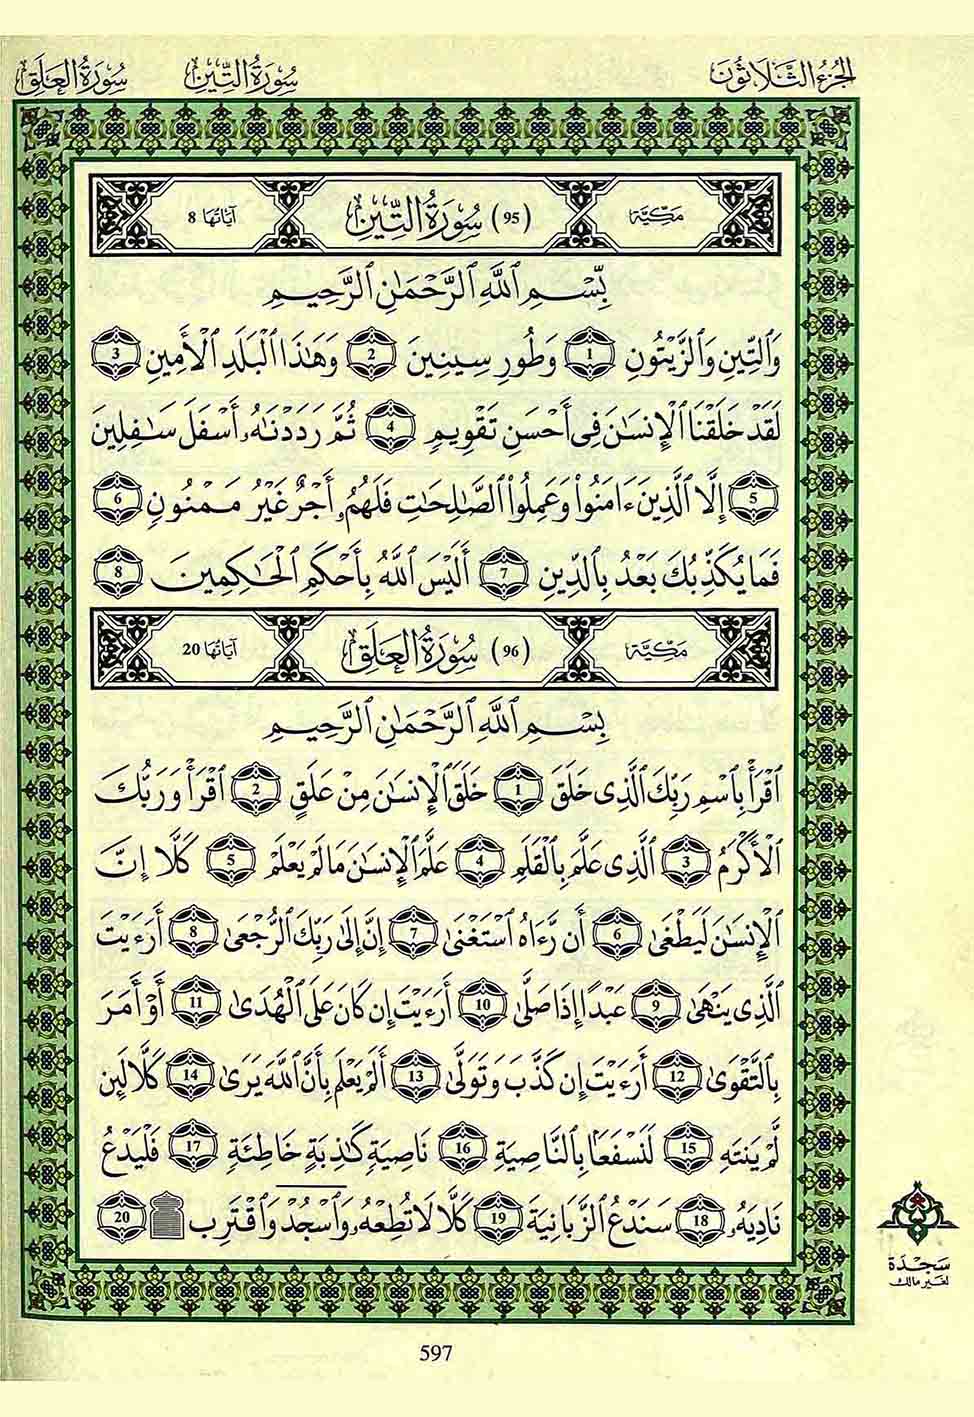 الجُزْءُ الثَّلَاثُونَ سُورَةُ التِّينِ سُورَةُ العَلَقِ
مَكِّيَّة (95) سُورَةُ التِّينِ آيَاتُهَا 8
بِّسْمِ اِ۬للَّهِ اِ۬لرَّحْمَٰنِ اِ۬لرَّحِيمِ
وَالتِّينِ وَالزَّيْتُونِ 1 وَطُورِ سِينِينَ 2 وَهَٰذَا الْبَلَدِ الْأَمِينِ 3
لَقَدْ خَلَقْنَا الْإِنسَٰنَ فِى أَحْسَنِ تَقْوِيمٍ 4 ثُمَّ رَدَدْنَٰهُۥ أَسْفَلَ سَٰفِلِينَ
5 إِلَّا الَّذِينَ ءَامَنُوا۟ وَعَمِلُوا۟ الصَّٰلِحَٰتِ فَلَهُمُۥ أَجْرٌ غَيْرُ مَمْنُونٍ 6
فَمَا يُكَذِّبُكَ بَعْدُ بِالدِّينِ 7 أَلَيْسَ اللَّهُ بِأَحْكَمِ الْحَٰكِمِينَ 8
مَكِّيَّة (96) سُورَةُ العَلَقِ آيَاتُهَا 20
بِسْمِ اللَّهِ الرَّحْمَٰنِ الرَّحِيمِ
اقْرَأْ بِاسْمِ رَبِّكَ الَّذِى خَلَقَ 1 خَلَقَ الْإِنسَٰنَ مِنْ عَلَقٍ 2 اقْرَأْ وَرَبُّكَ
الْأَكْرَمُ 3 الَّذِى عَلَّمَ بِالْقَلَمِ 4 عَلَّمَ الْإِنسَٰنَ مَا لَمْ يَعْلَمْ 5 كَلَّا إِنَّ
الْإِنسَٰنَ لَيَطْغَىٰ 6 أَن رَّءَاهُ اسْتَغْنَىٰ 7 إِنَّ إِلَىٰ رَبِّكَ الرُّجْعَىٰ 8 أَرَءَيْتَ
الَّذِى يَنْهَىٰ 9 عَبْدًا إِذَا صَلَّىٰ 10 أَرَءَيْتَ إِن كَانَ عَلَى الْهُدَىٰ 11 أَوْ أَمَرَ
بِالتَّقْوَىٰ 12 أَرَءَيْتَ إِن كَذَّبَ وَتَوَلَّىٰ 13 أَلَمْ يَعْلَم بِأَنَّ اللَّهَ يَرَىٰ 14 كَلَّا لَئِن
لَّمْ يَنتَهِ 15 لَنَسْفَعًۢا بِالنَّاصِيَةِ 16 نَاصِيَةٍ كَٰذِبَةٍ خَاطِئَةٍ 17 فَلْيَدْعُ
نَادِيَهُۥ 18 سَنَدْعُ الزَّبَانِيَةَ 19 كَلَّا لَا تُطِعْهُ وَاسْجُدْ وَاقْتَرِب ۩ 20
سَجْدَة
لغير مالك
597